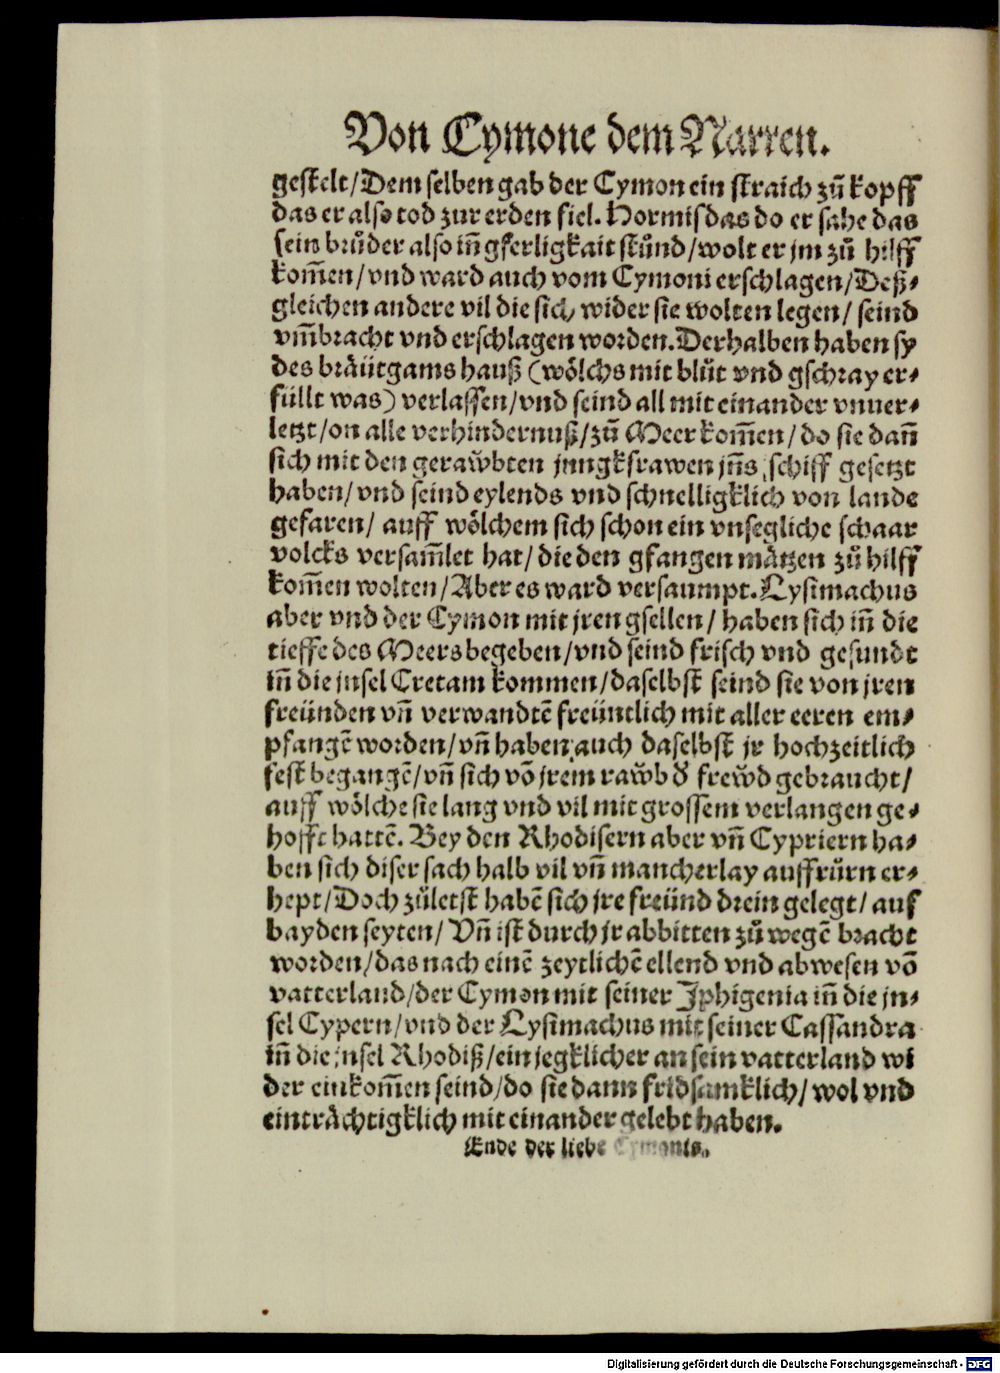 Von Cymone dem Narren.
gestelt/Dem selben gab der Cymon ein straich zů kopff
das er also tod zur erden fiel. Hormisdas do er sahe das
sein brůder also iñ gferligkait stůnd/wolt er jm zů hilff
kom̃en/vnd ward auch vom Cymoni erschlagen/Deß⸗
gleichen andere vil die sich wider sie wolten legen/ seind
vm̃bracht vnd erschlagen worden. Derhalben haben sy
des bräütgams hauß (wölchs mit blůt vnd gschray er⸗
füllt was) verlassen/vnd seind all mit einander vnuer⸗
letzt/on alle verhindernuß/zů Meer kom̃en/do sie dañ
sich mit den gerawbten jungkfrawen jñs schiff gesetzt
haben/vnd seind eylends vnd schnelligklich von lande
gefaren/ auff wölchem sich schon ein vnsegliche schaar
volcks versam̃let hat/die den gfangen mätzen zů hilff
kom̃en wolten/Aber es ward versaumpt. Lysimachus
aber vnd der Cymon mit jren gsellen/ haben sich iñ die
tieffe des Meers begeben/vnd seind frisch vnd gesundt
iñ die jnsel Cretam kommen/daselbst seind sie von jren
freünden vñ verwandtẽ freüntlich mit aller eeren em⸗
pfangẽ worden/vñ haben auch daselbst jr hochzeitlich
fest begangẽ/vñ sich võ jrem rawb d' frewd gebraucht/
auff wölche sie lang vnd vil mit grossem verlangen ge⸗
hofft hattẽ. Bey den Rhodisern aber vñ Cypriern ha⸗
ben sich diser sach halb vil vñ mancherlay auffrůrn er⸗
hept/Doch zůletst habẽ sich jre freünd drein gelegt/ auf
bayden seyten/ Vñ ist durch jr abbitten zů wegẽ bracht
worden/das nach einẽ zeytlichẽ ellend vnd abwesen võ
vatterland/der Cymon mit seiner Iphigenia iñ die jn⸗
sel Cypern/vnd der Lysimachus mit seiner Cassandra
iñ die jnsel Rhodiß/ein jegklicher an sein vatterland wi
der einkom̃en seind/do sie dann fridsamklich/wol vnd
einträchtigklich mit einander gelebt haben.
Ende der liebe Cymonis.
Digitalisierung gefördert durch die Deutsche Forschungsgemeinschaft - DFG